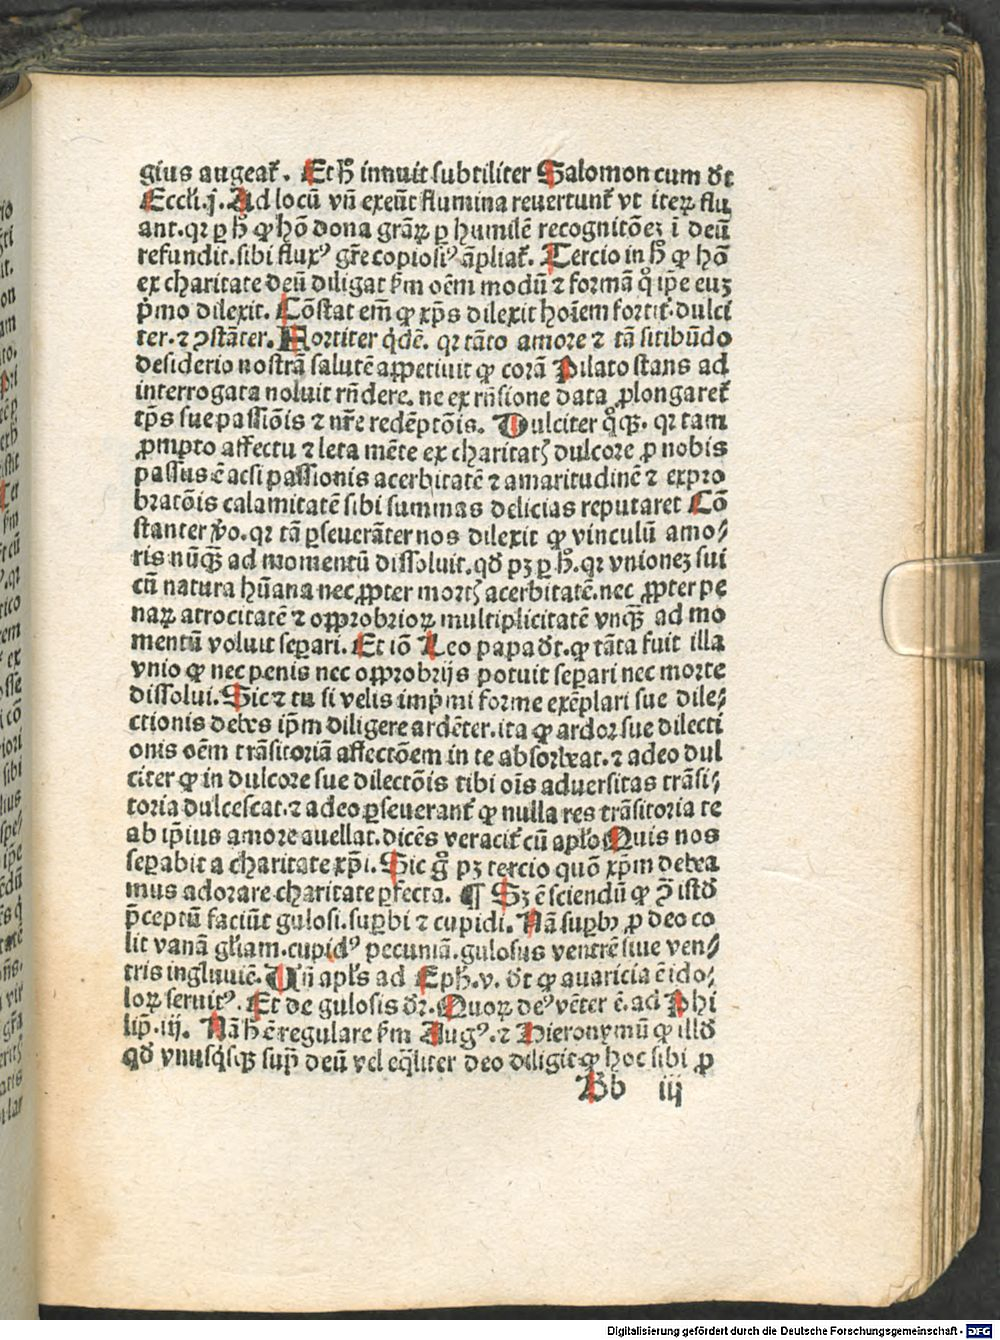 gius augeat᷑. Et ħ innuit subtiliter Salomon cum dt
Eccłi.j. Ad locū vñ exeūt flumina reuertunt᷑ vt iteꝝ flu
ant. qꝛ ꝑ ħ ꝙ hō dona grāꝝ ꝑ humilē recognitōeꝫ ī deū
refundit. sibi fluxꝰ gr̄e copiosiꝰ āpliat᷑. Tercio in ħ ꝙ hō
ex charitate deū diligat ẜm oēm modū ⁊ formā qͦ ip̄e euꝫ
pͥmo dilexit. Cōstat em̄ ꝙ xp̄s dilexit hoīem fortit᷑. dulci
ter. ⁊ ꝯstāter. Fortiter qͥdē. qꝛ tāto amore ⁊ tā sitibūdo
desiderio nostrā salutē appetiuit ꝙ corā Pilato stans ad
interrogata noluit rn̄dere. ne ex rn̄sione data ꝓlongaret᷑
tp̄s sue passiōis ⁊ nr̄e redēptōis. Dulciter qͦꝗꝫ. qꝛ tam
ꝓmpto affectu ⁊ leta mēte ex charitatꝭ dulcore ꝓ nobis
passus ē acsi passionis acerbitatē ⁊ amaritudinē ⁊ expro
bratōis calamitatē sibi summas delicias reputaret Cō
stanter ꝟo. qꝛ tā ꝑseuerāter nos dilexit ꝙ vinculū amo⸗
ris nūꝗꝫ ad momentū dissoluit. qď pꝫ ꝑ ħ. qꝛ vnioneꝫ sui
cū natura hūana nec ꝓpter mortꝭ acerbitatē. nec ꝓpter pe
naꝝ atrocitatē ⁊ opprobrioꝝ multiplicitatē vnꝗꝫ ad mo
mentū voluit seꝑari. Et iō Leo papa dt. ꝙ tāta fuit illa
vnio ꝙ nec penis nec opprobrijs potuit seꝑari nec morte
dissolui. Sic ⁊ tu si velis impͥmi forme exēplari sue dile⸗
ctionis debes ip̄m diligere ardēter. ita ꝙ ardor sue dilecti
onis oēm trāsitoriā affectōem in te absorbeat. ⁊ adeo dul
citer ꝙ in dulcore sue dilectōis tibi oīs aduersitas trāsi⸗
toria dulcescat. ⁊ adeo ꝑseuerant᷑ ꝙ nulla res trāsitoria te
ab ip̄ius amore auellat. dicēs veracit᷑ cū apło Quis nos
seꝑabit a charitate xp̄i. Sic gͦ pꝫ tercio quō xp̄m debea
mus adorare charitate ꝑfecta. ¶ Sꝫ ē sciendū ꝙ ꝯ̄ istď
p̄ceptū faciūt gulosi. suꝑbi ⁊ cupidi. Nā suꝑbꝰ ꝓ deo co
lit vanā głiam. cupidꝰ pecuniā. gulosus ventrē siue ven⸗
tris ingluuiē. Vñ apłs ad Eph. v. dt ꝙ auaricia ē ido⸗
loꝝ seruitꝰ. Et de gulosis dꝛ. Quoꝝ deꝰ vēter ē. ad Phi
lip̄. iij. Nā ħ ē regulare ẜm Augꝰ. ⁊ Hieronymū ꝙ illď
qď vnusqͥsꝗꝫ sup̄ deū vel eq̄liter deo diligit. ꝙ hoc sibi ꝓ
Bb iij
Digitalisierung gefördert durch die Deutsche Forschungsgemeinschaft - DFG